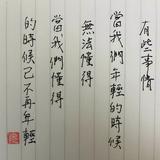 有些事情
當我們年輕的時候
無法懂得
當我們懂得
的時候已不再年輕